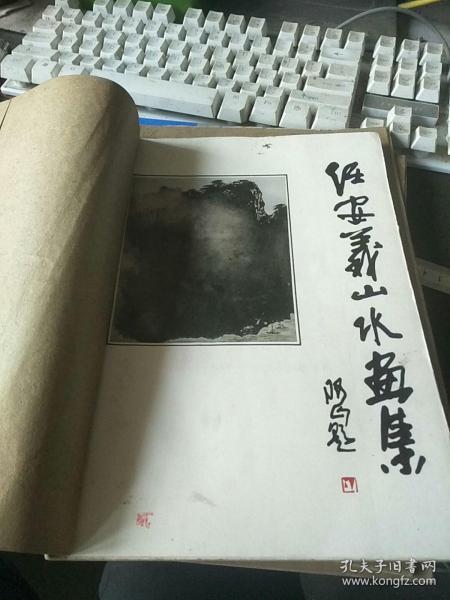 任安义山水画集
孔夫子旧书网
www.kongfz.com